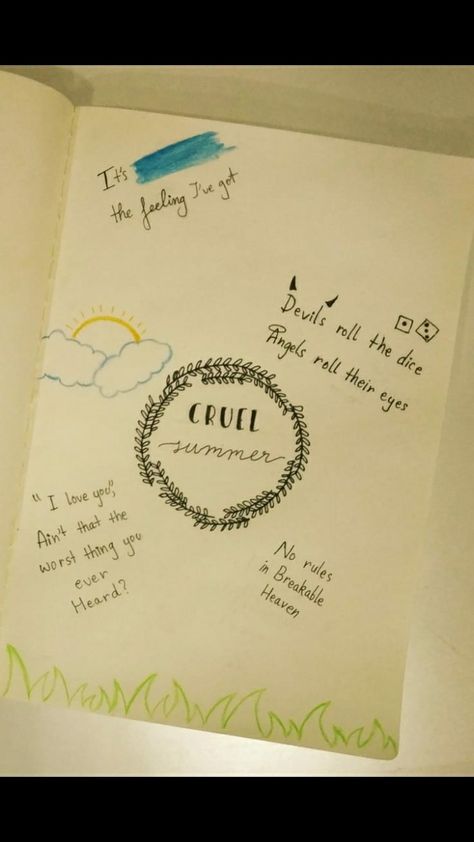 It's
the feeling I've got
Devils roll the dice
Angels roll their eyes
CRUEL
summer
"I love you",
Ain't that the
worst thing you
ever
Heard?
No rules
in Breakable
Heaven